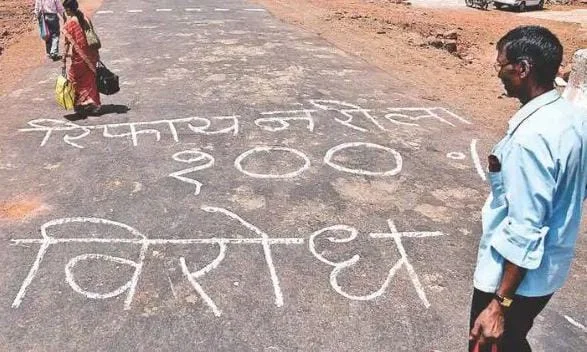 रिफायनरीला
१००%
विरोध